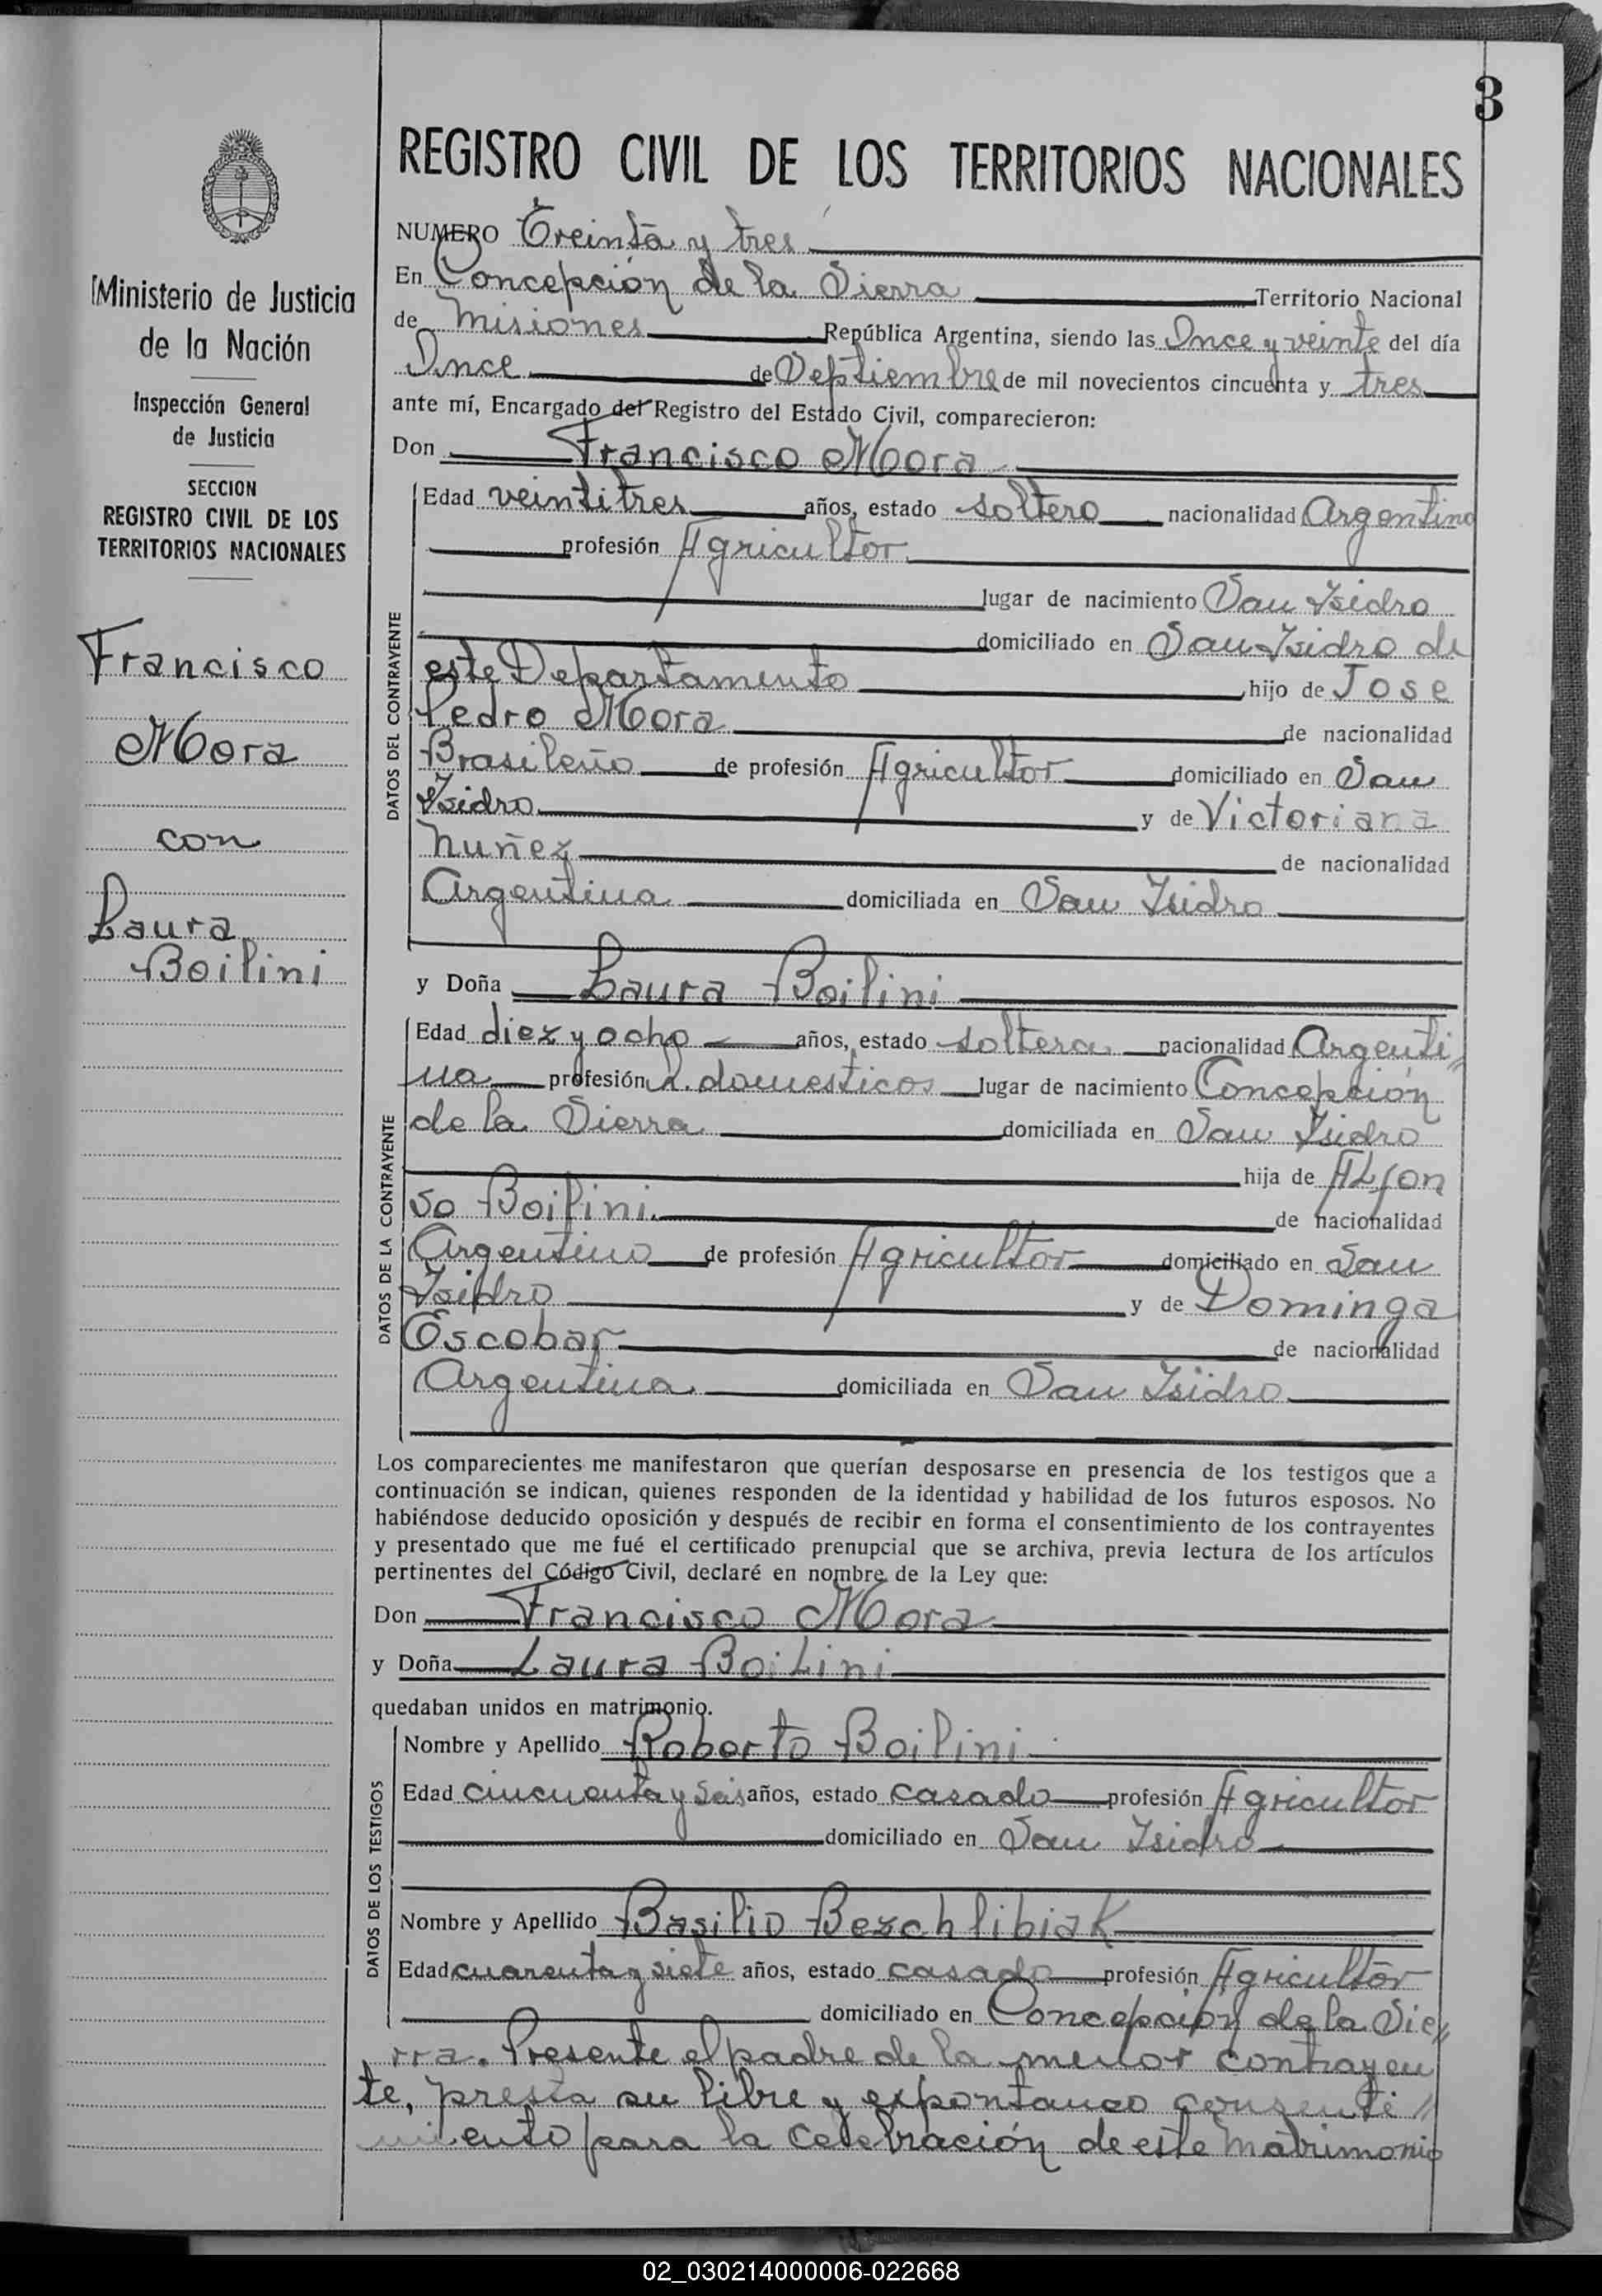 3
REGISTRO CIVIL DE LOS TERRITORIOS NACIONALES
Ministerio de Justicia
de la Nación
Inspección General
de Justicia
SECCION
REGISTRO CIVIL DE LOS
TERRITORIOS NACIONALES
Francisco
Mora
con
Laura
Boilini
NUMERO Treinta y tres
En Concepción de la Sierra Territorio Nacional
de Misiones República Argentina, siendo las Once y veinte del día
Once de Septiembre de mil novecientos cincuenta y tres
ante mí, Encargado del Registro del Estado Civil, comparecieron:
Don Francisco Mora
DATOS DEL CONTRAYENTE
Edad veintitres años, estado soltero nacionalidad Argentino
profesión Agricultor
lugar de nacimiento San Isidro
domiciliado en San Isidro de
este Departamento hijo de Jose
Pedro Mora de nacionalidad
Brasileño de profesión Agricultor domiciliado en San
Isidro y de Victoriana
Nuñez de nacionalidad
Argentina domiciliada en San Isidro
y Doña Laura Boilini
DATOS DE LA CONTRAYENTE
Edad diez y ocho años, estado soltera nacionalidad Argenti
na profesión Q. domesticos lugar de nacimiento Concepción
de la Sierra domiciliada en San Isidro
hija de Alfon
so Boilini. de nacionalidad
Argentino de profesión Agricultor domiciliado en San
Isidro y de Dominga
Escobar de nacionalidad
Argentina domiciliada en San Isidro
Los comparecientes me manifestaron que querían desposarse en presencia de los testigos que a
continuación se indican, quienes responden de la identidad y habilidad de los futuros esposos. No
habiéndose deducido oposición y después de recibir en forma el consentimiento de los contrayentes
y presentado que me fué el certificado prenupcial que se archiva, previa lectura de los artículos
pertinentes del Código Civil, declaré en nombre de la Ley que:
Don Francisco Mora
y Doña Laura Boilini
quedaban unidos en matrimonio.
DATOS DE LOS TESTIGOS
Nombre y Apellido Roberto Boilini
Edad cincuenta y seis años, estado casado profesión Agricultor
domiciliado en San Isidro
Nombre y Apellido Basilio Bezchlibiak
Edad cuarenta y siete años, estado casado profesión Agricultor
domiciliado en Concepción de la Sie
rra. Presente el padre de la menor contrayen
te, presta su libre y expontaneo consenti
miento para la celebración de este Matrimonio
02_030214000006-022668